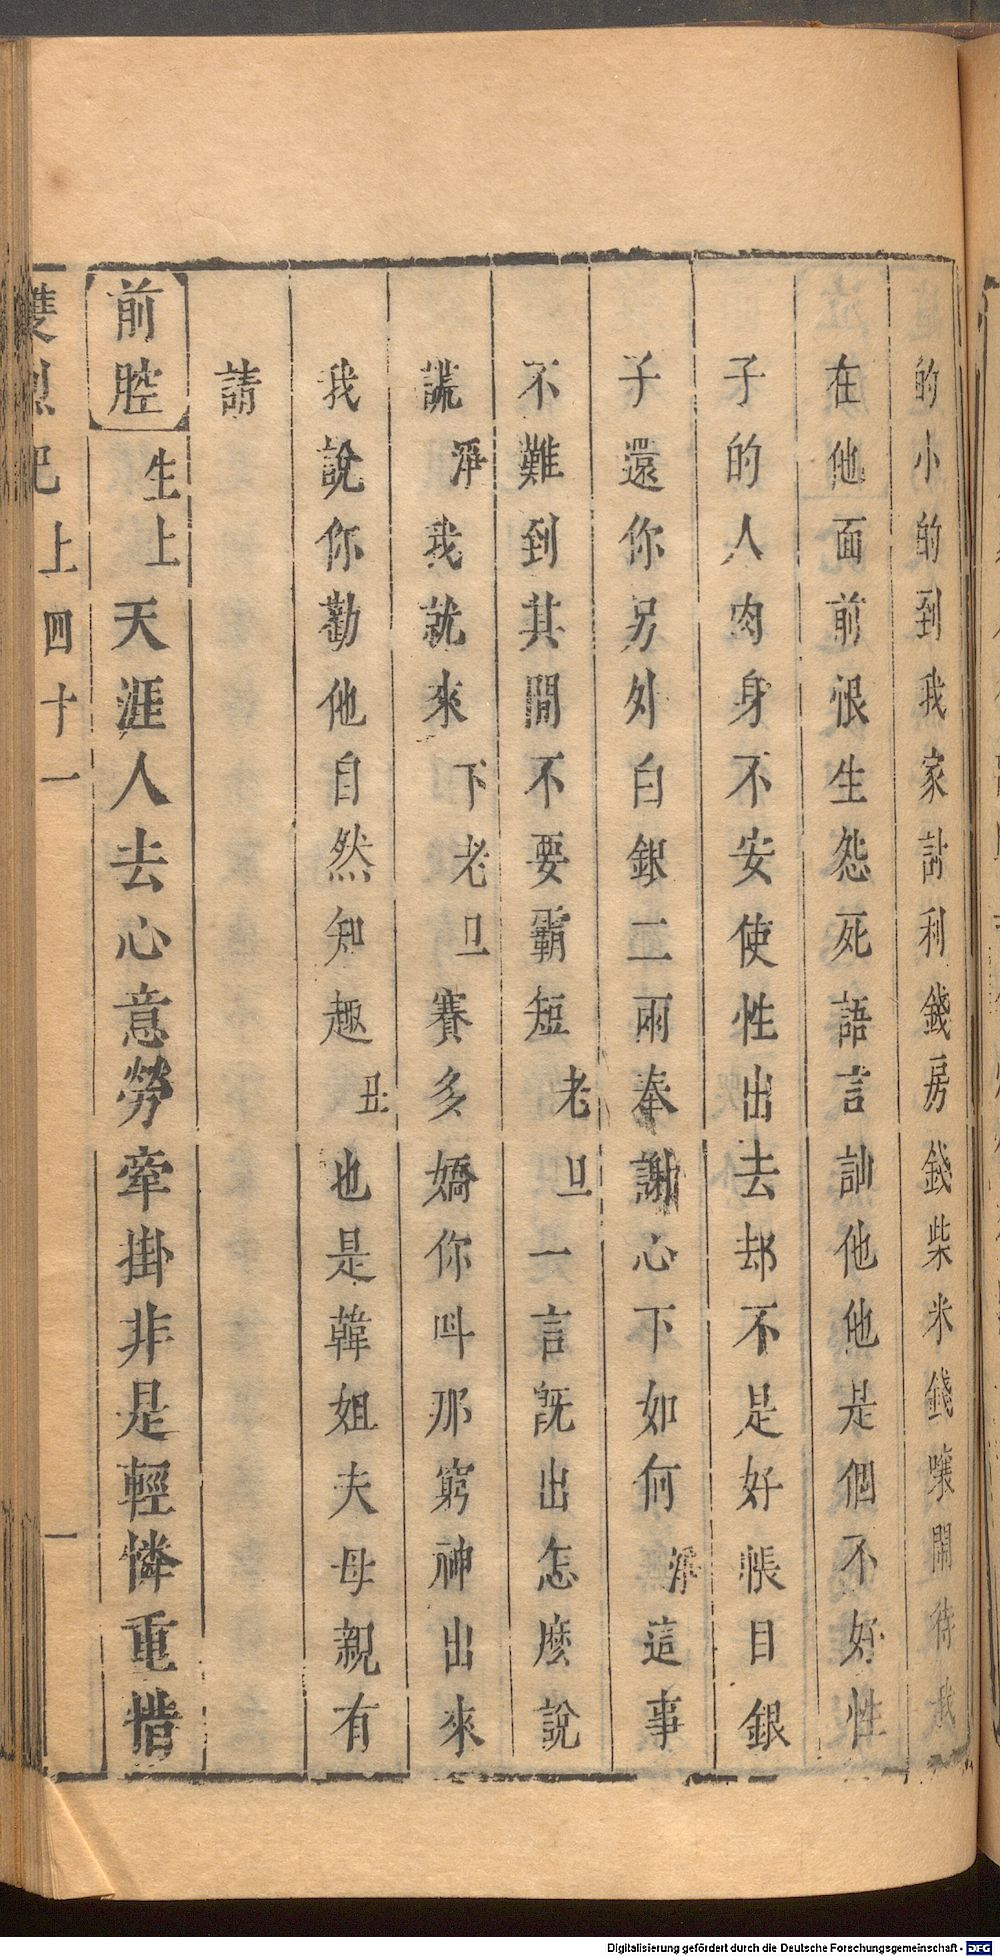 的小的到我家討利錢房錢柴米錢嚷鬧待我
在他面前恨生怨死語言訓他他是個不好性
子的人肉身不安使性出去却不是好帳目銀
子還你另外白銀二兩奉謝心下如何淨這事
不難到其間不要霸短老旦一言旣出怎麽說
謊淨我就來下老旦賽多嬌你呌那窮神出來
我說你勸他自然知趣丑也是韓姐夫母親有
請
前腔生上天涯人去心意勞牽掛非是輕憐重惜
雙烈記上四十一 一
Digitalisierung gefördert durch die Deutsche Forschungsgemeinschaft - DFG